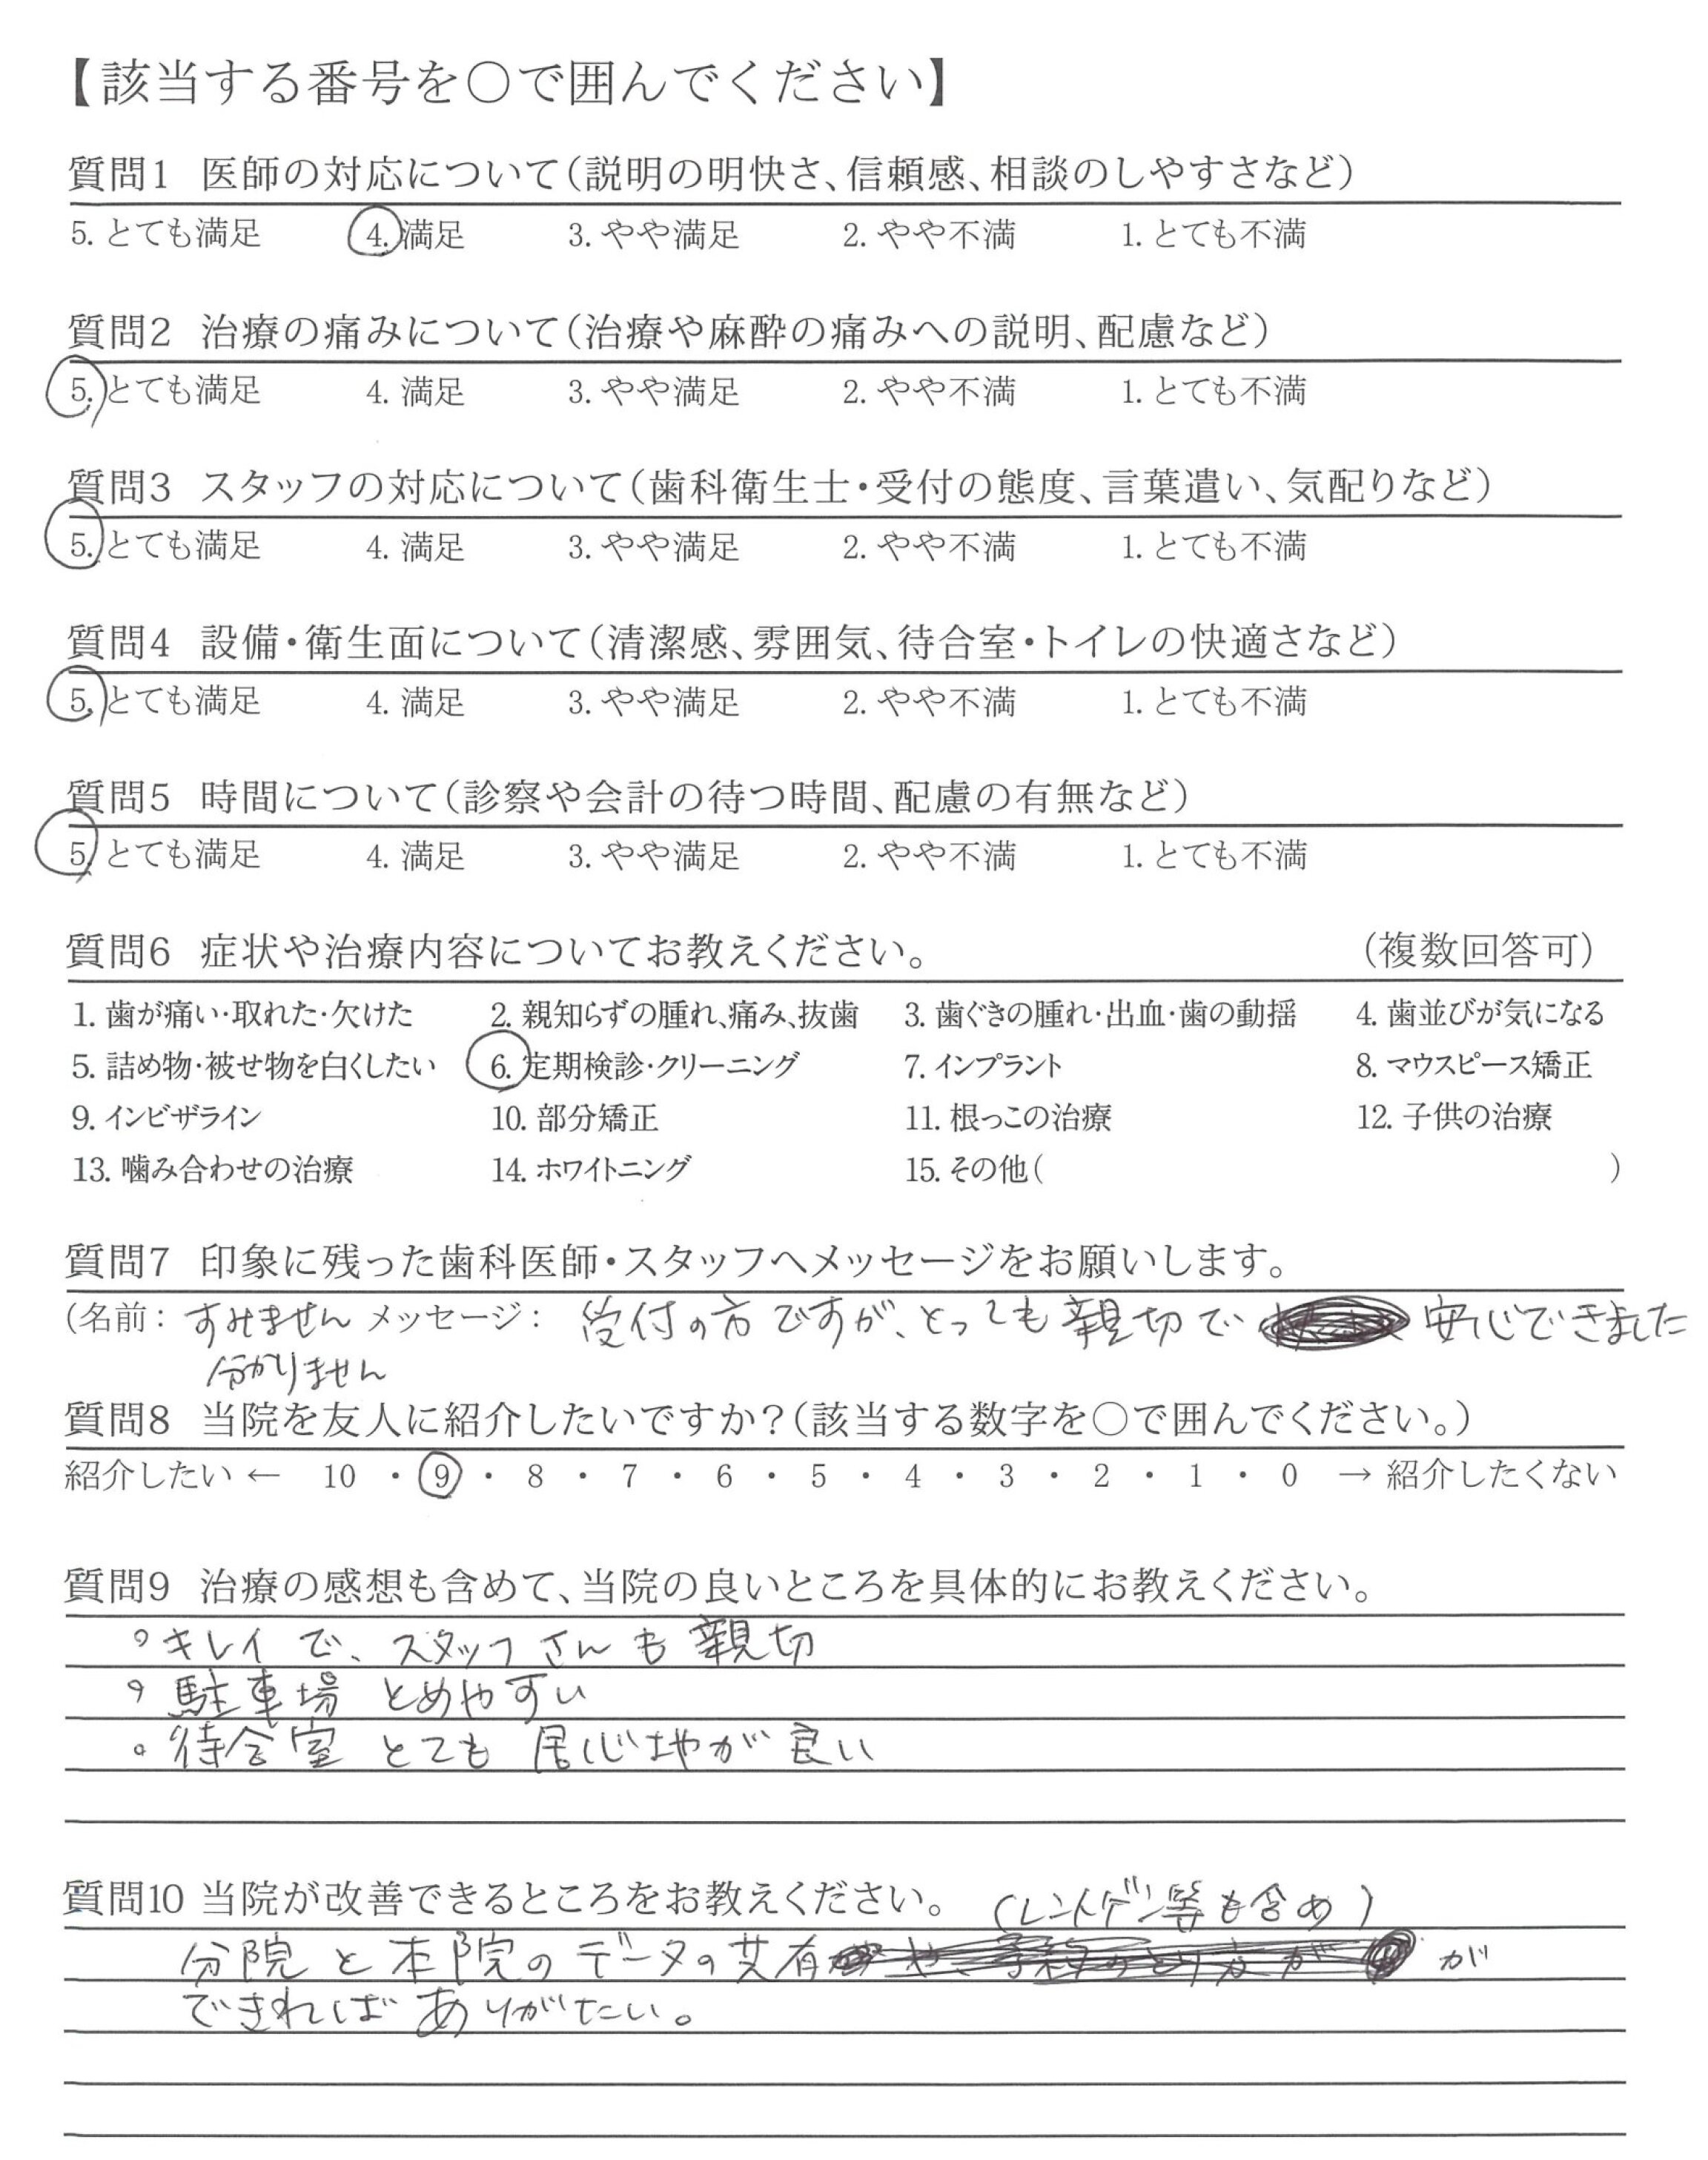 【該当する番号を〇で囲んでください】
質問1 医師の対応について(説明の明快さ、信頼感、相談のしやすさなど)
5. とても満足 4. 満足 3. やや満足 2. やや不満 1. とても不満
質問2 治療の痛みについて(治療や麻酔の痛みへの説明、配慮など)
5. とても満足 4. 満足 3. やや満足 2. やや不満 1. とても不満
質問3 スタッフの対応について(歯科衛生士・受付の態度、言葉遣い、気配りなど)
5. とても満足 4. 満足 3. やや満足 2. やや不満 1. とても不満
質問4 設備・衛生面について(清潔感、雰囲気、待合室・トイレの快適さなど)
5. とても満足 4. 満足 3. やや満足 2. やや不満 1. とても不満
質問5 時間について(診察や会計の待つ時間、配慮の有無など)
5. とても満足 4. 満足 3. やや満足 2. やや不満 1. とても不満
質問6 症状や治療内容についてお教えください。 (複数回答可)
1. 歯が痛い・取れた・欠けた 2. 親知らずの腫れ、痛み、抜歯 3. 歯ぐきの腫れ・出血・歯の動揺 4. 歯並びが気になる
5. 詰め物・被せ物を白くしたい 6. 定期検診・クリーニング 7. インプラント 8. マウスピース矯正
9. インビザライン 10. 部分矯正 11. 根っこの治療 12. 子供の治療
13. 噛み合わせの治療 14. ホワイトニング 15. その他( )
質問7 印象に残った歯科医師・スタッフへメッセージをお願いします。
(名前: すみません メッセージ: 受付の方ですが、とっても親切で 安心できました
分かりません
質問8 当院を友人に紹介したいですか?(該当する数字を〇で囲んでください。)
紹介したい ← 10 ・ 9 ・ 8 ・ 7 ・ 6 ・ 5 ・ 4 ・ 3 ・ 2 ・ 1 ・ 0 → 紹介したくない
質問9 治療の感想も含めて、当院の良いところを具体的にお教えください。
。キレイで、スタッフさんも親切
。駐車場 とめやすい
。待合室 とても 居心地が良い
質問10 当院が改善できるところをお教えください。 (レントゲン等も含め)
分院と本院のデータの共有 が
できれば ありがたい。